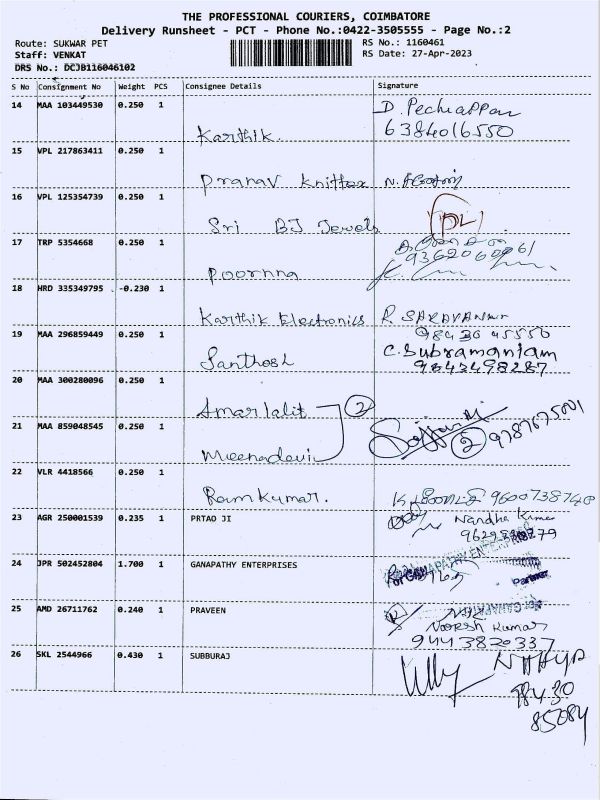 THE PROFESSIONAL COURIERS, COIMBATORE
Delivery Runsheet - PCT - Phone No.:0422-3505555 - Page No.:2
Route: SUKWAR PET
Staff: VENKAT
DRS No.: DCJB116046102
RS No.: 1160461
RS Date: 27-Apr-2023
S No Consignment No Weight PCS Consignee Details Signature
14 MAA 103449530 0.250 1
Karthik.
D. Pechiappan
6384016550
15 VPL 217863411 0.250 1
Pranav Knittex
16 VPL 125354739 0.250 1
Sri BJ Jewels
17 TRP 5354668 0.250 1
Poornna
18 HRD 335349795 -0.230 1
Karthik Electronics R SARAVANAN
19 MAA 296859449 0.250 1
Santhosh
C. Subramaniam
9843498287
20 MAA 300280096 0.250 1
Amarlalit 2
21 MAA 859048545 0.250 1
Meenadevi 2
22 VLR 4418566 0.250 1
Ramkumar. 9600738748
23 AGR 250001539 0.235 1 PRTAO JI
Nandha Kumar
24 JPR 502452804 1.700 1 GANAPATHY ENTERPRISES
For GANAPATHY ENTERPRISES
Partner
25 AMD 26711762 0.240 1 PRAVEEN
Naresh Kumar
9443820337
26 SKL 2544966 0.430 1 SUBBURAJ
98430
85084